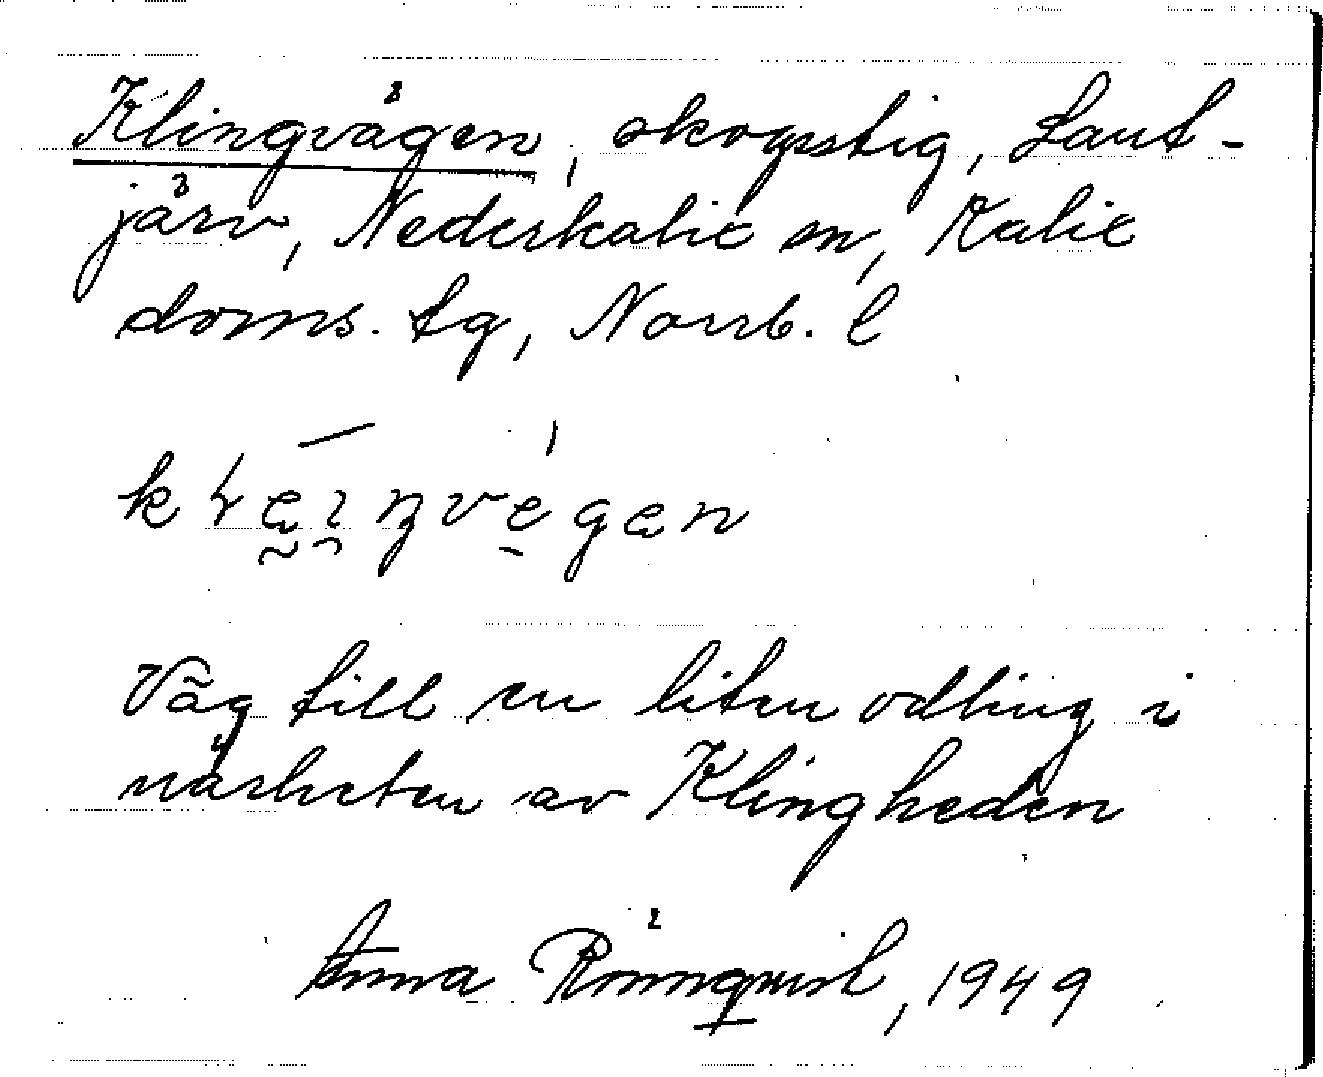 Klingvägen, skogsstig, Lant-
järv, Nederkalix sn, Kalix
doms. tg, Norrb. l
Väg till en liten odling i
närheten av Klingheden
Anna Rönnqvist, 1949